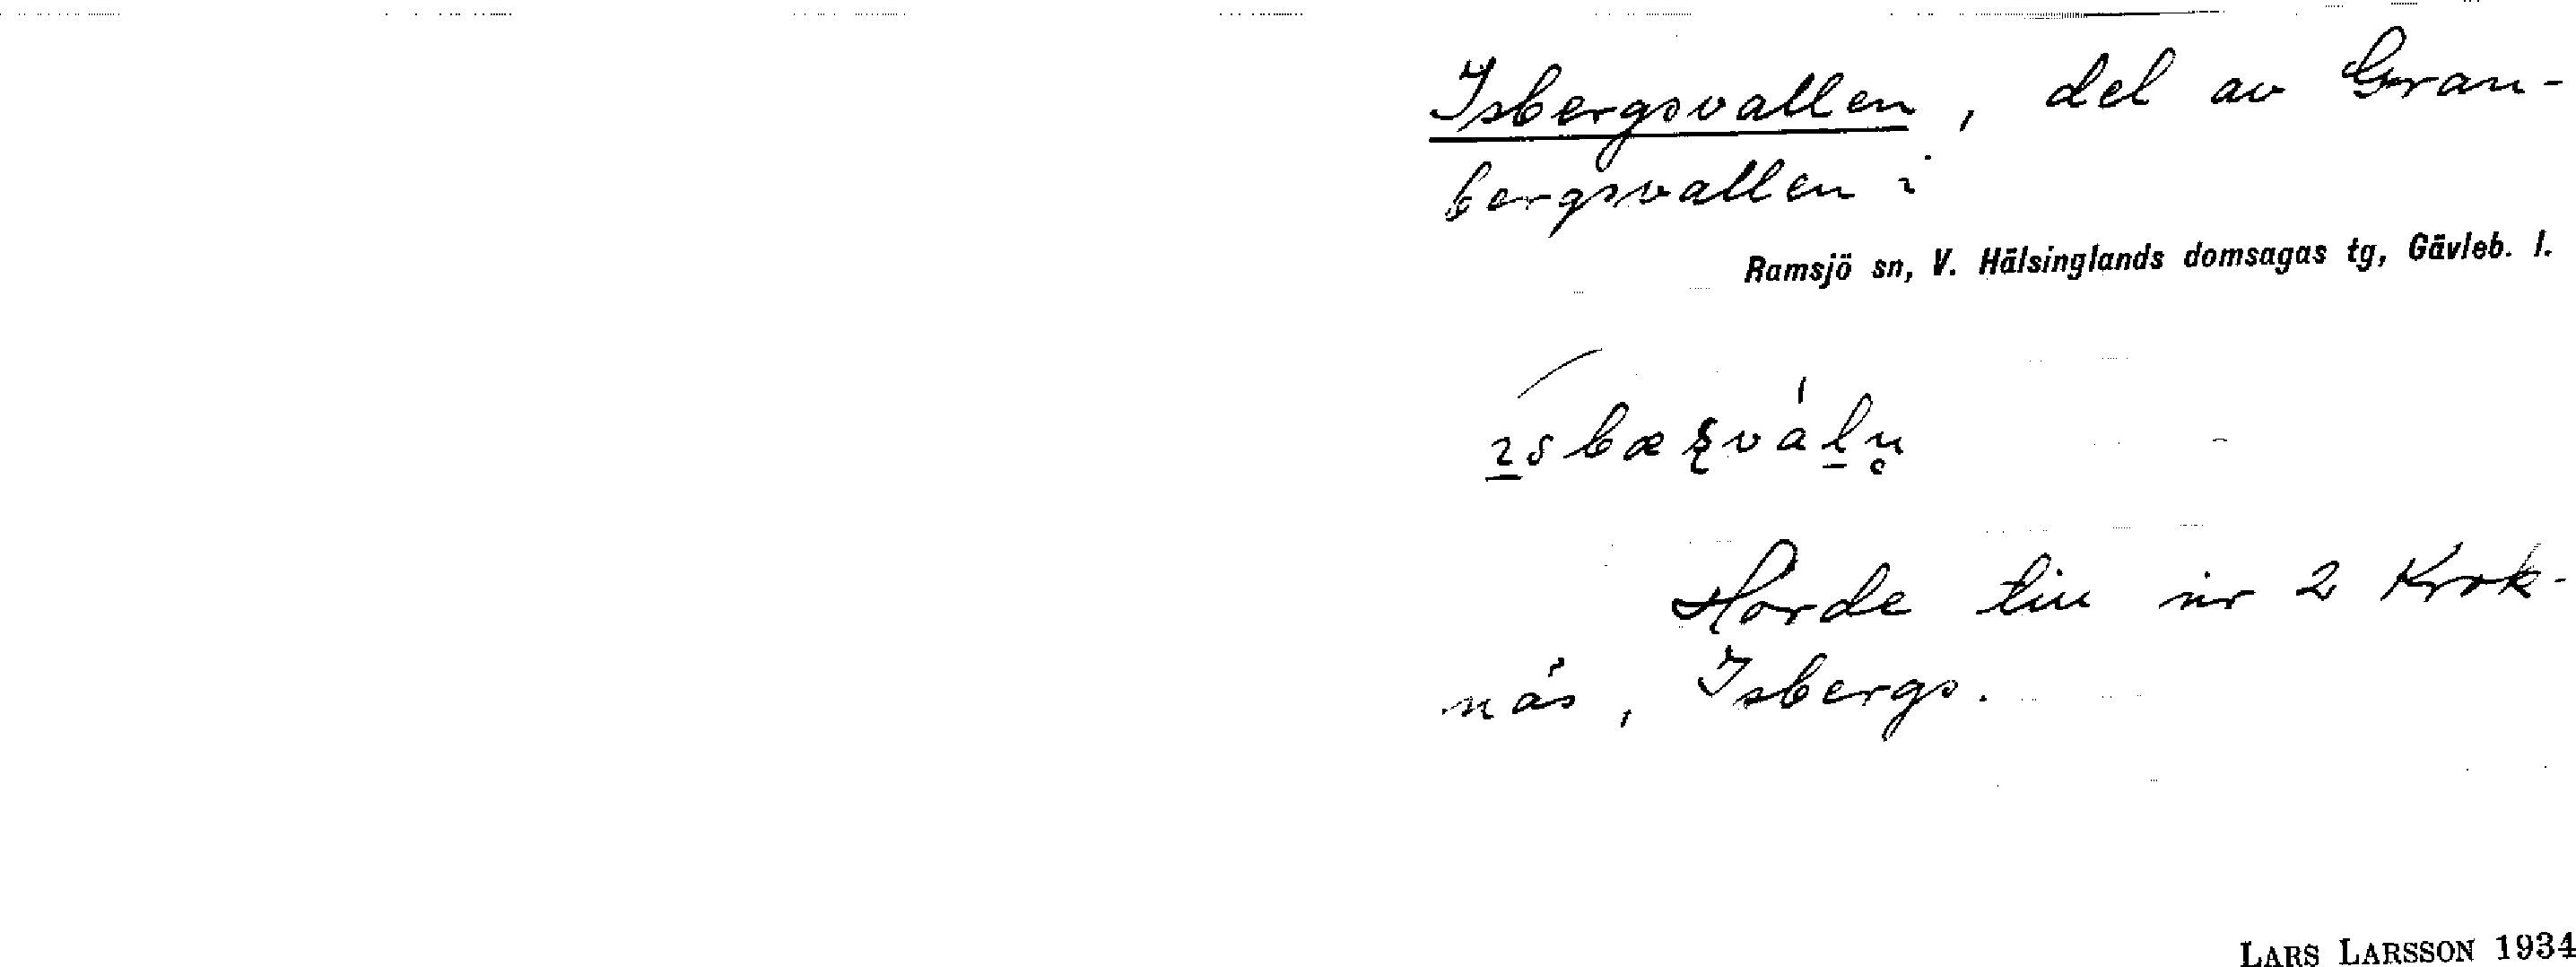 Isbergsvallen, del av Gran-
bergsvallen i
Ramsjö sn, V. Hälsinglands domsagas tg, Gävleb. l.
Horde till nr 2 Krok-
näs, Isbergs.
LARS LARSSON 1934